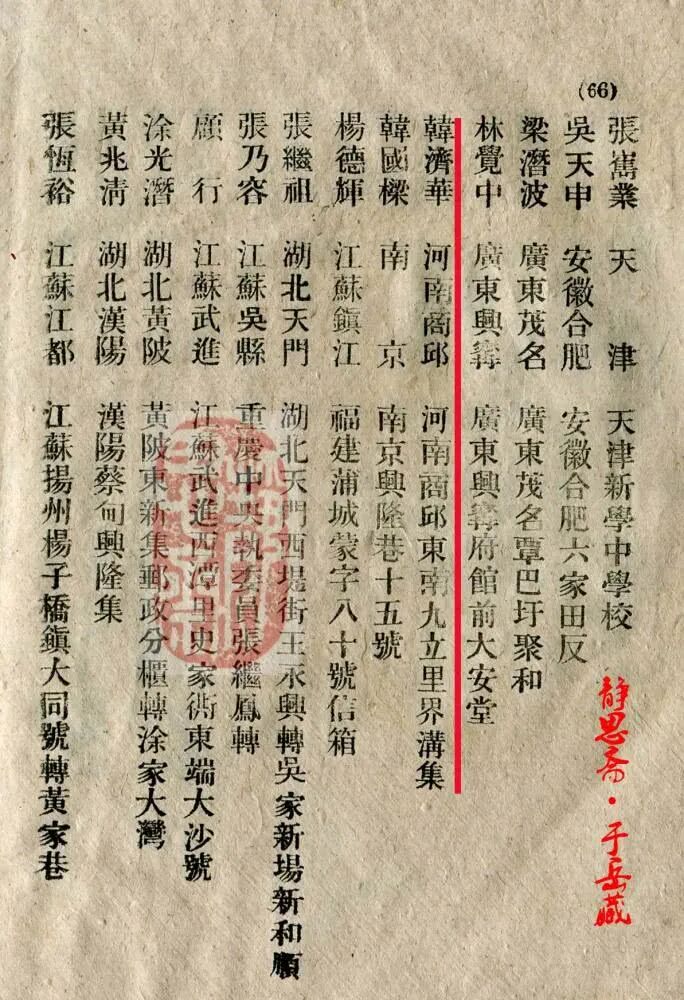 (66)
張嶲業 天津 天津新學中學校
吳天申 安徽合肥 安徽合肥六家田反
梁潛波 廣東茂名 廣東茂名覃巴圩聚和
林覺中 廣東興寧 廣東興寧府館前大安堂
韓濟華 河南商邱 河南商邱東南九立里界溝集
韓國樑 南京 南京興隆巷十五號
楊德輝 江蘇鎮江 福建蒲城蒙字八十號信箱
張繼祖 湖北天門 湖北天門西堤街王永興轉吳家新場新和順
張乃容 江蘇吳縣 重慶中央執委員張繼鳳轉
顧行 江蘇武進 江蘇武進西潭里史家衖東端大沙號
涂光潛 湖北黃陂 黃陂東新集郵政分櫃轉涂家大灣
黃兆清 湖北漢陽 漢陽蔡甸興隆集
張恆裕 江蘇江都 江蘇揚州楊子橋鎮大同號轉黃家巷
靜思齋·于岳藏